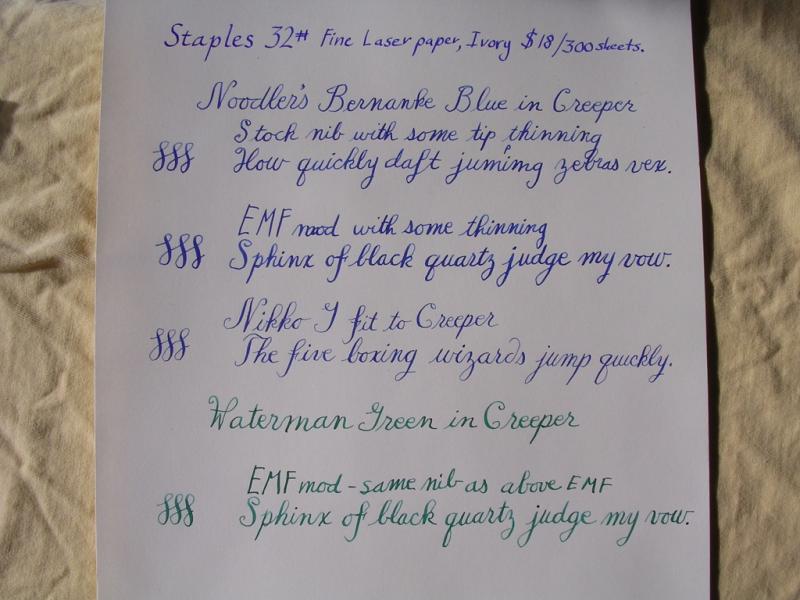 Staples 32# Fine Laser paper, Ivory $18/300 sheets.
Noodler's Bernanke Blue in Creeper
Stock nib with some tip thinning
How quickly daft jumimg zebras vex.
EMF mod with some thinning
Sphinx of black quartz judge my vow.
Nikko G fit to Creeper
The five boxing wizards jump quickly.
Waterman Green in Creeper
EMF mod - same nib as above EMF
Sphinx of black quartz judge my vow.